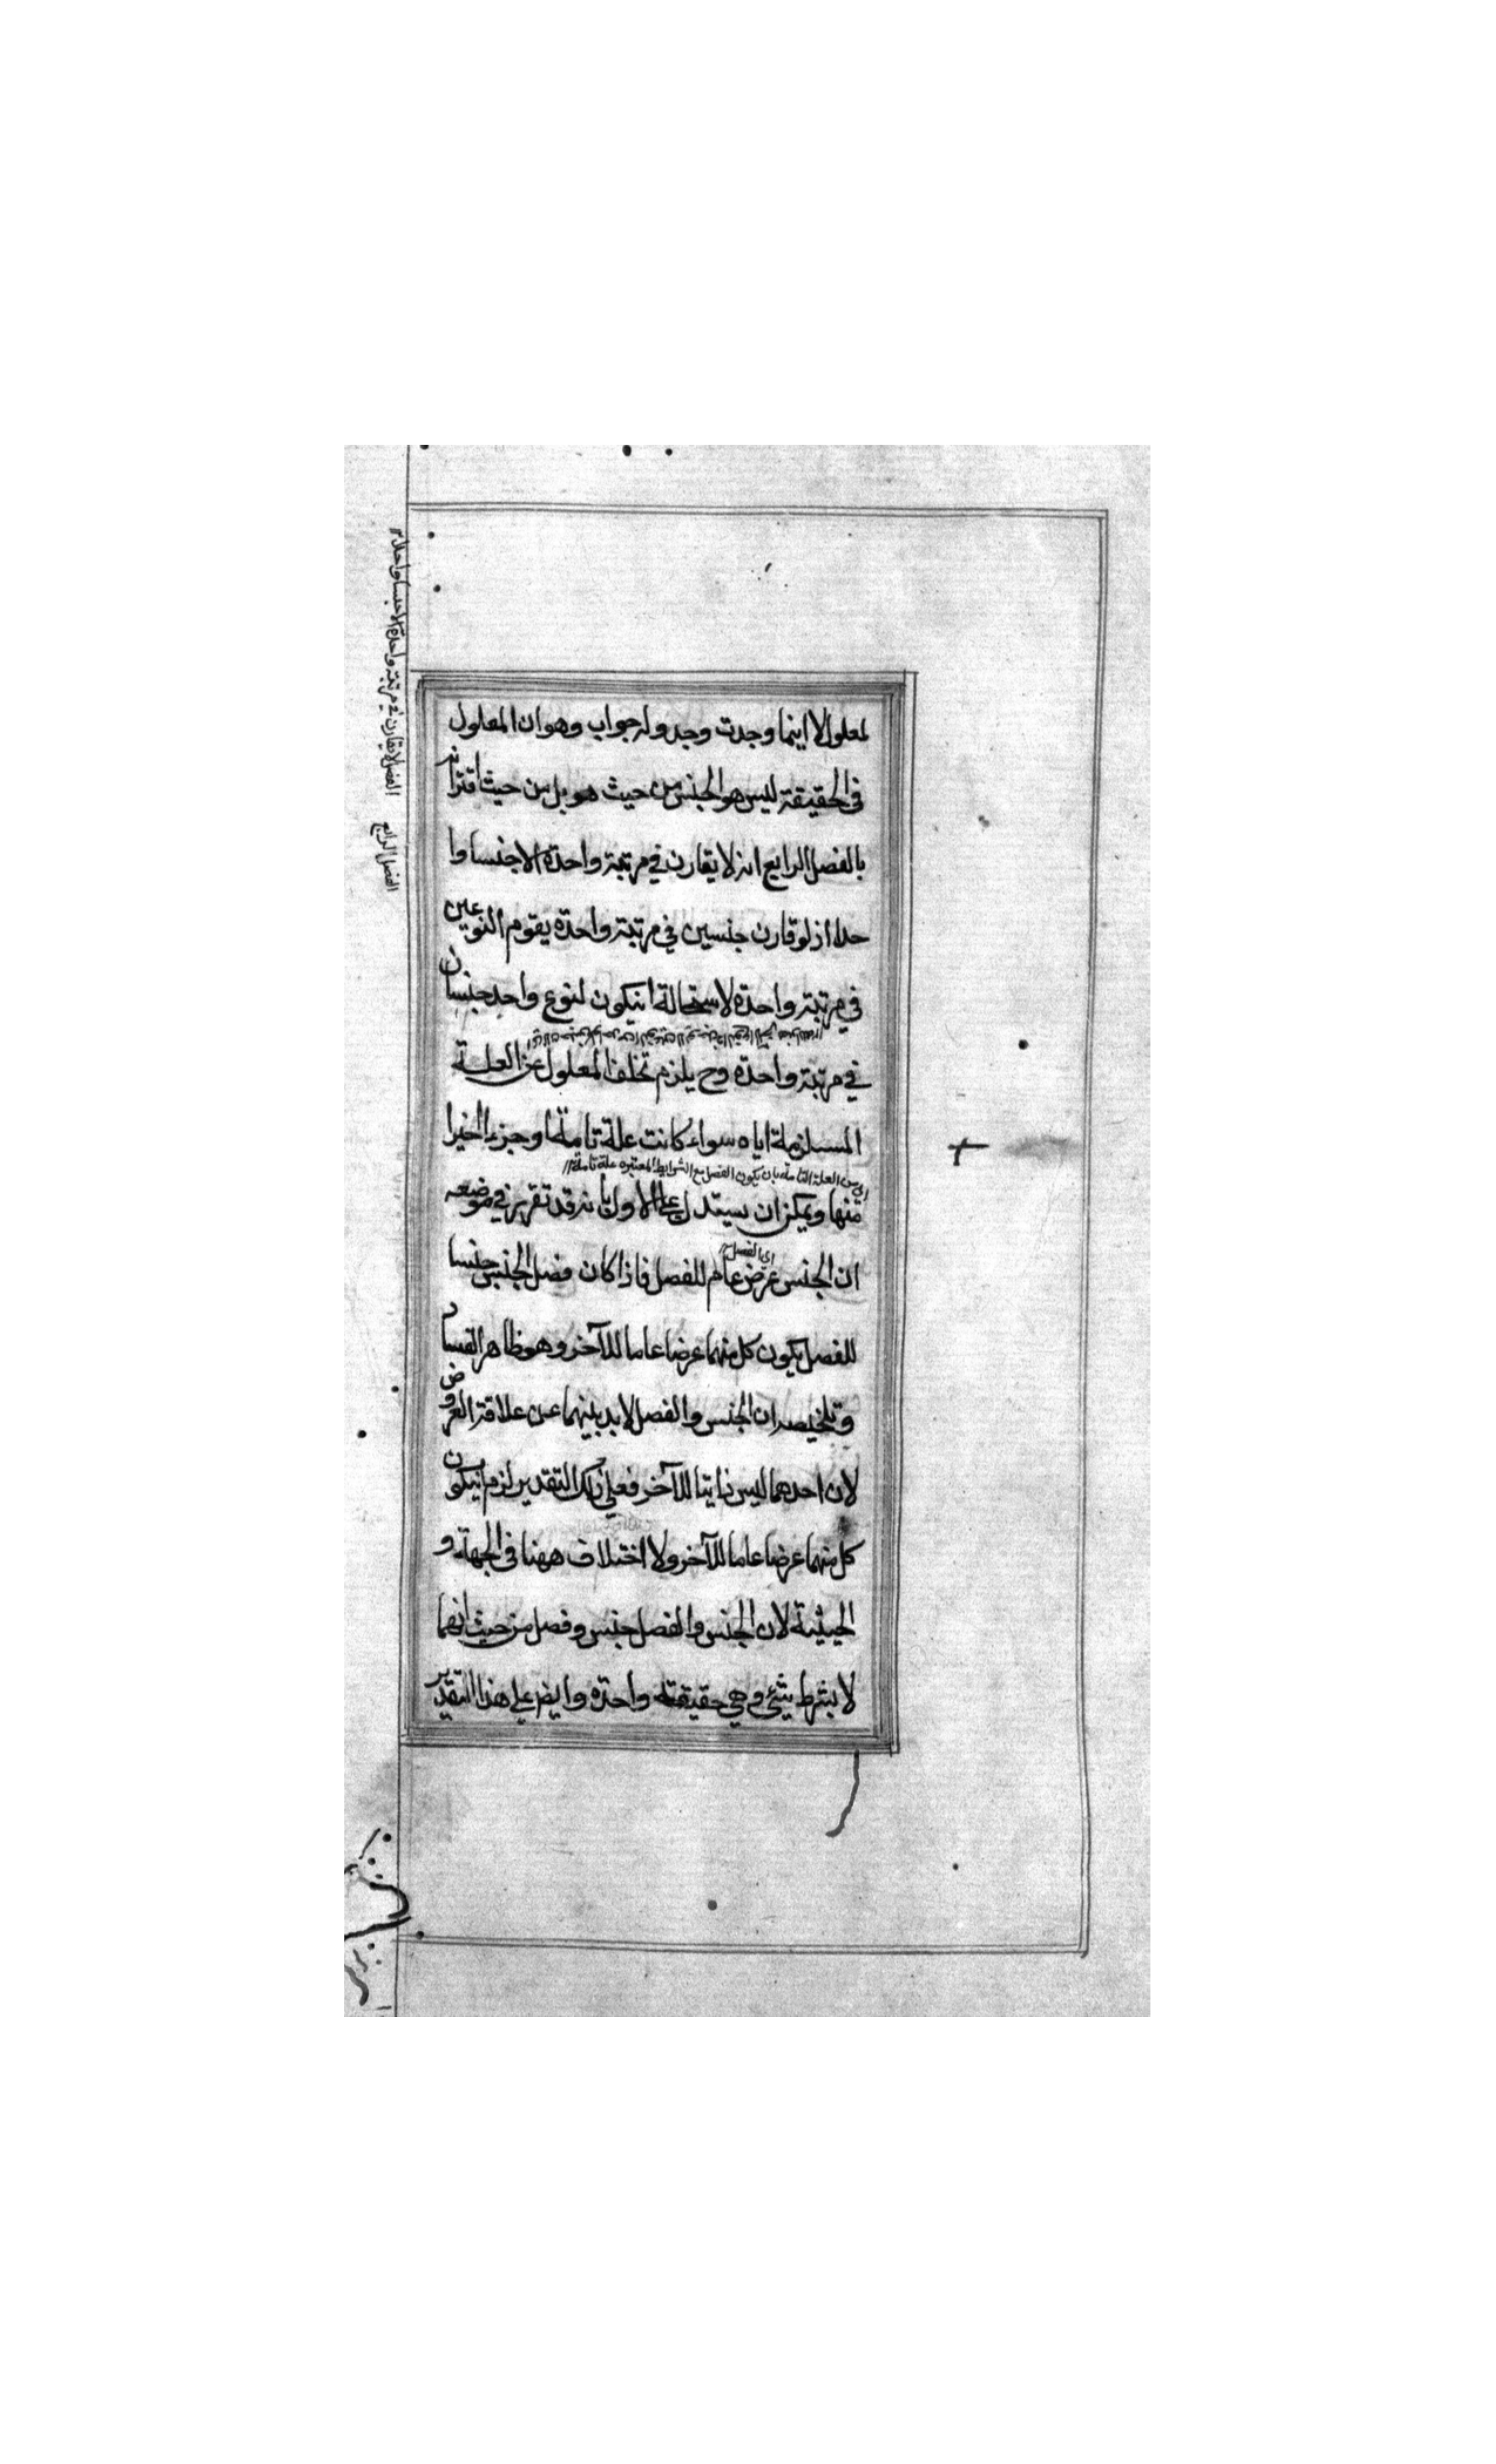 لمعلول لا اينما وجدت وجد وله جواب وهو ان المعلول
فى الحقيقة ليس هو الجنس من حيث هو بل من حيث اقترانه
بالفصل الرابع انه لا يقارن في مرتبة واحدة الا جنسا وا
حدا اذ لو قارن جنسين في مرتبة واحدة يقوم النوعين
في مرتبة واحدة لاستحالة انيكون لنوع واحد جنسان
في مرتبة واحدة وح يلزم تخلف المعلول عن العلة
المستلزمة اياه سواء كانت علة تامة او جزءا اخيرا
اي من العلة التامة بان يكون الفصل مع الشرايط المعتبره علة تامة
منها ويمكن ان يستدل على الاول بانه قد تقرر في موضعه
اي الفصل
ان الجنس عرض عام للفصل فاذا كان فصل الجنس جنسا
للفصل يكون كل منهما عرضا عاما للآخر وهو ظاهر الفساد
وتلخيصه ان الجنس والفصل لا بد بينهما عن علاقة العروض
لان احدهما ليس ذاتيا للآخر فعلى ذلك التقدير لزم انيكون
كل منهما عرضا عاما للآخر ولا اختلاف ههنا فى الجهة و
الحيثية لان الجنس والفصل جنس وفصل من حيث انهما
لا بشرط شئ وهي حقيقة واحدة وايضا على هذا التقدير
الفصل الرابع
الفصل لا يقارن في مرتبة واحدة الا جنسا واحدا